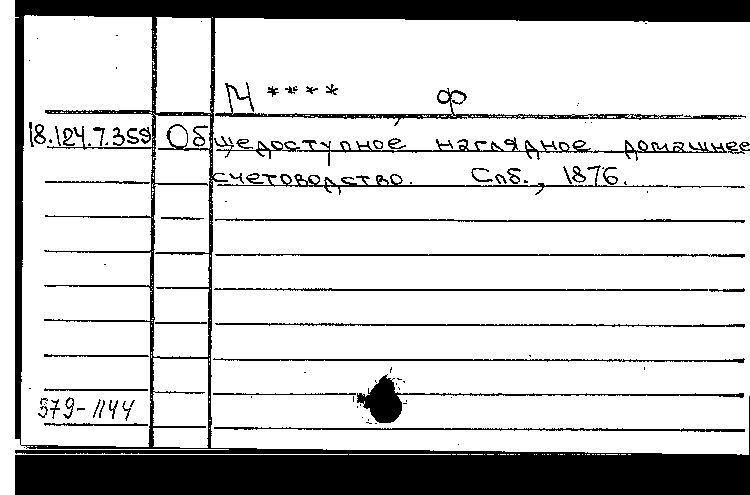 М **** Ф
18.124.7.359 Общедоступное наглядное домашнее
счетоводство. Спб., 1876.
579-1144